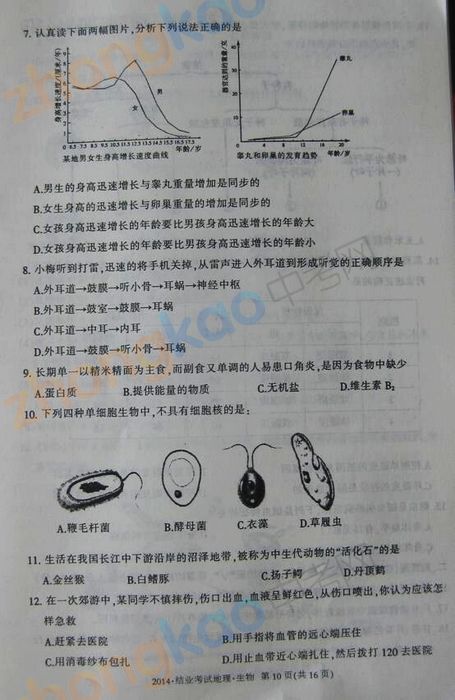 7. 认真读下面两幅图片,分析下列说法正确的是
身高增长速度/(厘米/年)
9
8
7
6
5
4
3
2
1
男
女
0 6.5 7.5 8.5 9.5 10.5 11.5 12.5 13.5 14.5 15.5 16.5 17.5
年龄/岁
某地男女生身高增长速度曲线
器官达到的重量/克
40
30
20
10
0
睾丸
卵巢
4 8 12 16 20
年龄/岁
睾丸和卵巢的发育趋势
A.男生的身高迅速增长与睾丸重量增加是同步的
B.女生身高的迅速增长与卵巢重量的增加是同步的
C.女孩身高迅速增长的年龄要比男孩身高迅速增长的年龄大
D.女孩身高迅速增长的年龄要比男孩身高迅速增长的年龄小
8. 小梅听到打雷,迅速的将手机关掉,从雷声进入外耳道到形成听觉的正确顺序是
A.外耳道→鼓膜→听小骨→耳蜗→神经中枢
B.外耳道→鼓室→鼓膜→耳蜗
C.外耳道→中耳→内耳
D.外耳道→鼓膜→听小骨→耳蜗
9. 长期单一以精米精面为主食,而副食又单调的人易患口角炎,是因为食物中缺少
A.蛋白质 B.提供能量的物质 C.无机盐 D.维生素 B₂
10. 下列四种单细胞生物中,不具有细胞核的是:
A.鞭毛杆菌 B.酵母菌 C.衣藻 D.草履虫
11. 生活在我国长江中下游沿岸的沼泽地带,被称为中生代动物的“活化石”的是
A.金丝猴 B.白鳍豚 C.扬子鳄 D.丹顶鹤
12. 在一次郊游中,某同学不慎摔伤,伤口出血,血液呈鲜红色,从伤口喷出,你认为应该怎
样急救
A.赶紧去医院 B.用手指将血管的远心端压住
C.用消毒纱布包扎 D.用止血带近心端扎住,然后拨打 120 去医院
2014·结业考试地理·生物 第 10 页(共 16 页)
zhongkao中考网